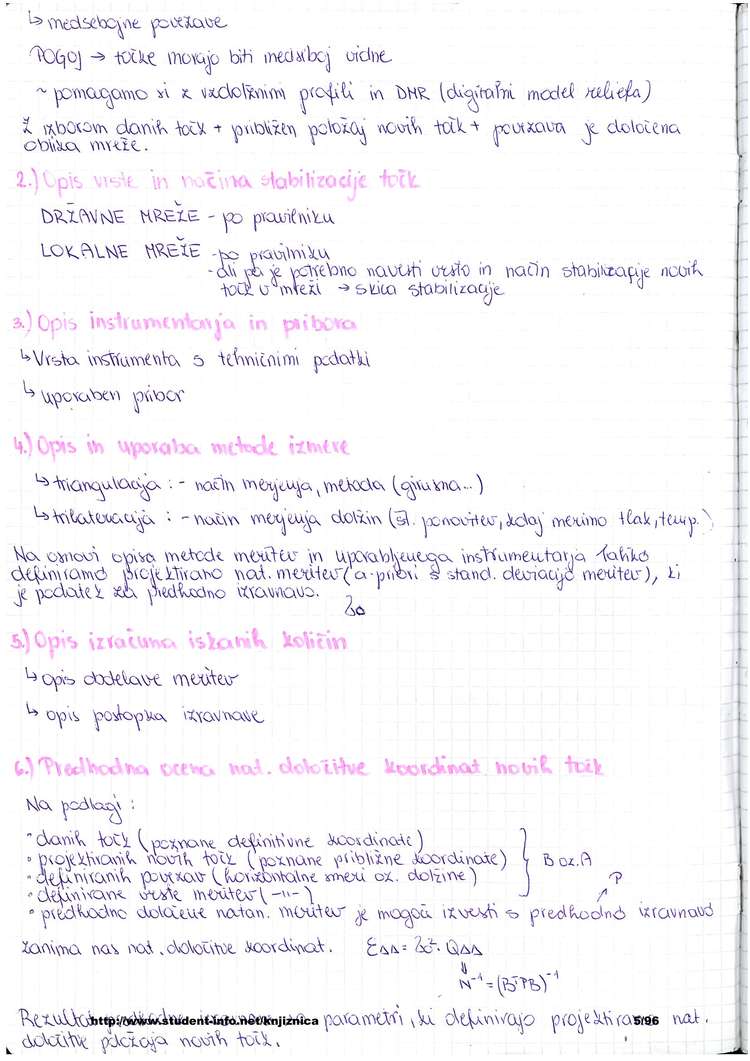 ↳ medsebojne povezave
POGOJ → točke morajo biti medseboj vidne
~ pomagamo si z vzdolžnimi profili in DMR (digitalni model reliefa)
Z izborom danih točk + približen položaj novih točk + povezava je določena
oblika mreže.
2.) Opis vrste in načina stabilizacije točk
DRŽAVNE MREŽE - po pravilniku
LOKALNE MREŽE - po pravilniku
- ali pa je potrebno navesti vrsto in način stabilizacije novih
točk v mreži → skica stabilizacije
3.) Opis instrumentarija in pribora
↳ Vrsta instrumenta s tehničnimi podatki
↳ uporaben pribor
4.) Opis in uporaba metode izmere
↳ triangulacija : - način merjenja, metoda (girusna...)
↳ trilateracija : - način merjenja dolžin (št. ponovitev, kdaj merimo tlak, temp.)
Na osnovi opisa metode meritev in uporabljenega instrumentarija lahko
definiramo projektirano nat. meritev (a-priori s stand. deviacijo meritev), ki
je podatek za predhodno izravnavo.
5.) Opis izračuna iskanih količin
↳ opis obdelave meritev
↳ opis postopka izravnave
6.) Predhodna ocena nat. določitve koordinat novih točk
Na podlagi :
• danih točk (poznane definitivne koordinate)
• projektiranih novih točk (poznane približne koordinate) } B oz. A
• definiranih povezav (horizontalne smeri oz. dolžine)
• definirane vrste meritev (-11-)
P
• predhodno določene natan. meritev je mogoče izvesti s predhodno izravnavo
Zanima nas nat. določitve koordinat. ΣΔΔ = σ₀². QΔΔ
⇓
N⁻¹ = (BᵀPB)⁻¹
http://www.student-info.net/knjiznica parametri, ki definirajo 5/96 nat.
določitve položaja novih točk.